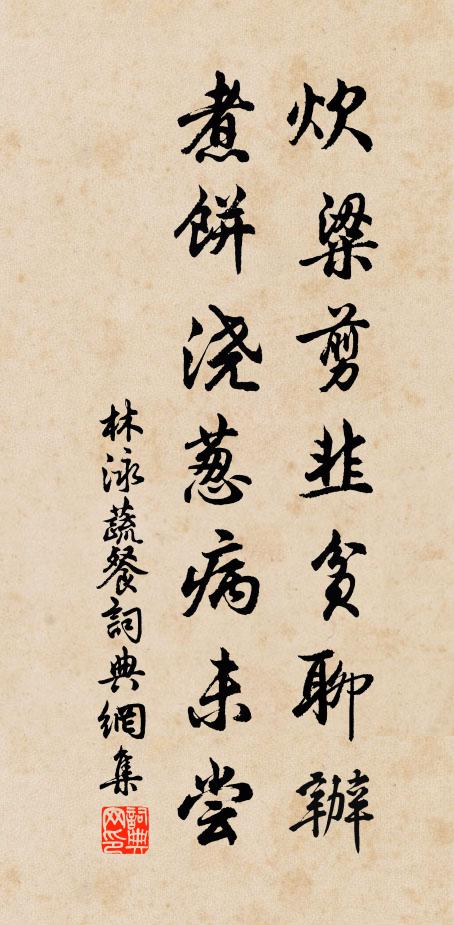 炊粱剪韭贫聊辦
煮餅浇葱病未尝
林泳蔬餐詞典網集
詞典网印